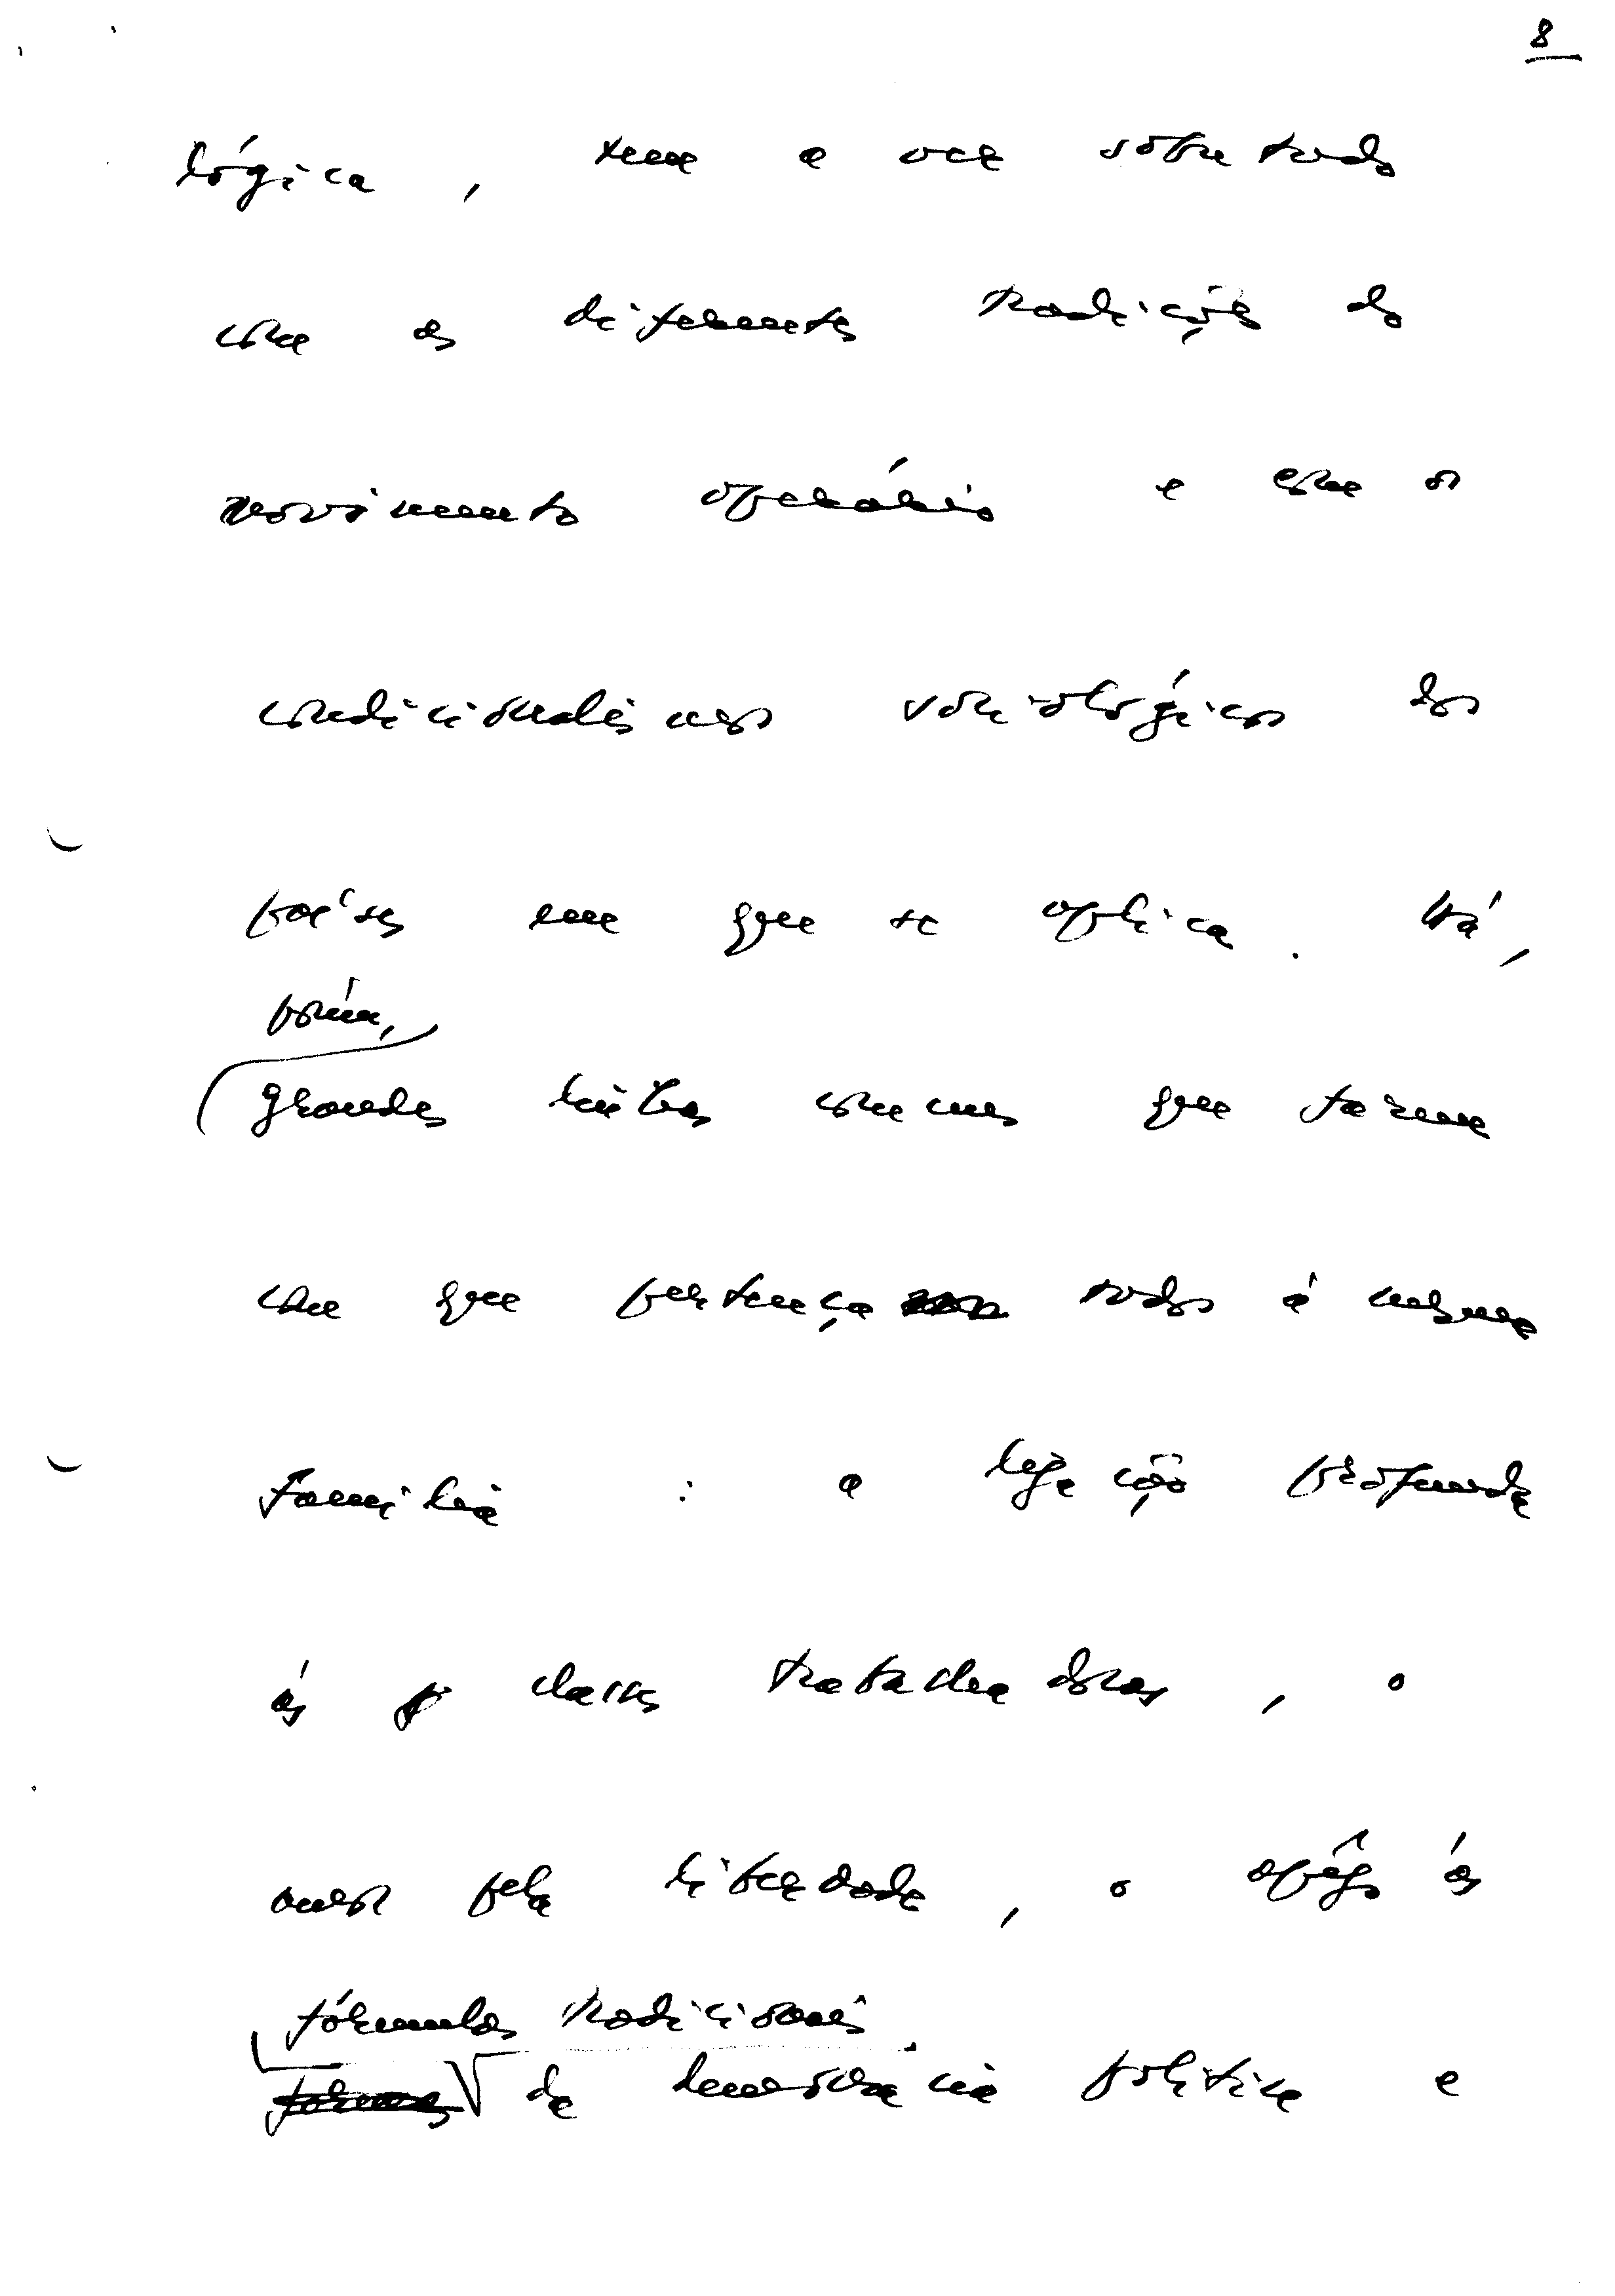 8
lógica, tem a ver sobretudo
com as diferentes tradições do
movimento operário e com os
condicionalismos sociológicos dos
países em que se aplica. Há,
porém,
grandes linhas comuns que fazem
com que pertença todos à mesma
família : a ligação profunda
às classes trabalhadoras, o
amor pela liberdade, o apêgo às
fórmulas tradicionais
da democracia política e